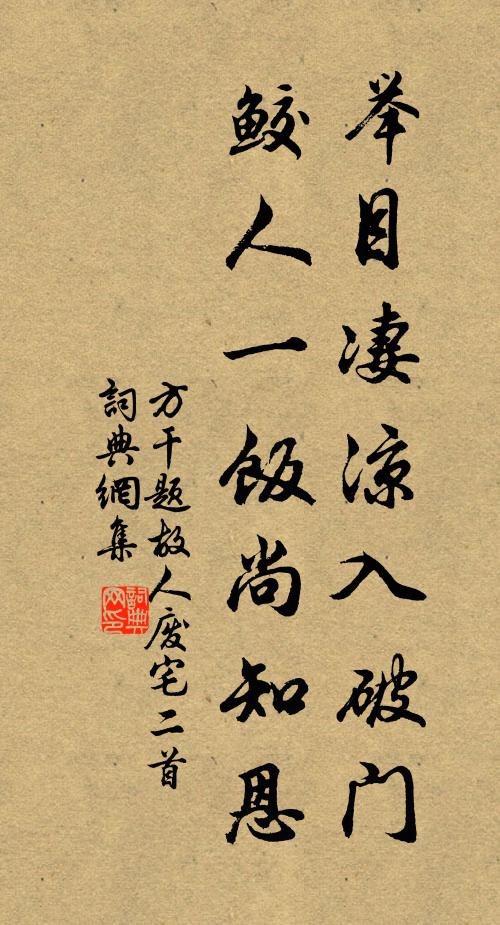 举目凄凉入破门
鲛人一饭尚知恩
方干题故人废宅二首
詞典網集
詞典网印